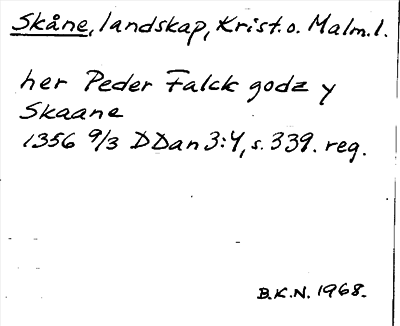 Skåne, landskap, Krist. o. Malm. l.
her Peder Falck godz y
Skaane
1356 9/3 DDan 3:4, s. 339. reg.
B.K.N. 1968.